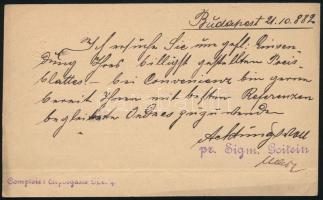 Budapest 21.10.882
Ich ersuche Sie um gefl. Einsen-
dung Ihres billigst gestellten Preis-
blattes – bei Convenienz bin gerne
bereit Ihnen mit besten Referenzen
begleitete Ordres zugu wenden
Achtungsvoll
pr. Sigm. Goitein
Comptoir: